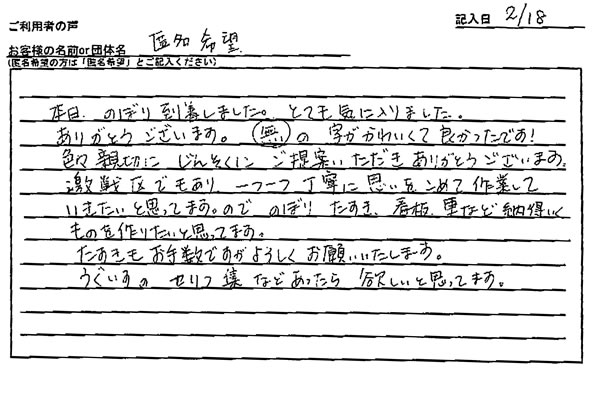 ご利用者の声
記入日 2/18
お客様の名前or団体名 匿名希望
(匿名希望の方は「匿名希望」とご記入ください)
本日、のぼり到着しました。とても気に入りました。
ありがとうございます。無の字がかわいくて良かったです!
色々親切にじんそくにご提案いただきありがとうございます。
激戦区でもあり一つ一つ丁寧に思いをこめて作業して
いきたいと思ってます。のでのぼり、たすき、看板、車など納得いく
ものを作りたいと思ってます。
たすきもお手数ですがよろしくお願いいたします。
うぐいすのセリフ集などあったら欲しいと思ってます。